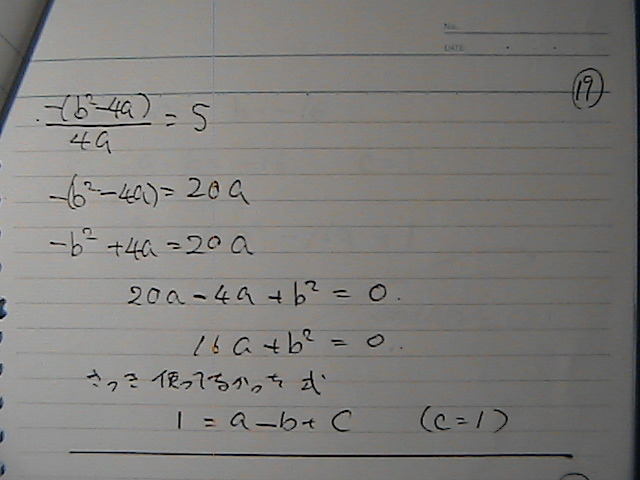 No.
DATE
19
-(b²-4a)/4a = 5
-(b²-4a) = 20a
-b²+4a = 20a
20a-4a+b² = 0.
16a+b² = 0.
さっき使ってなかった式
1 = a-b+c (c=1)